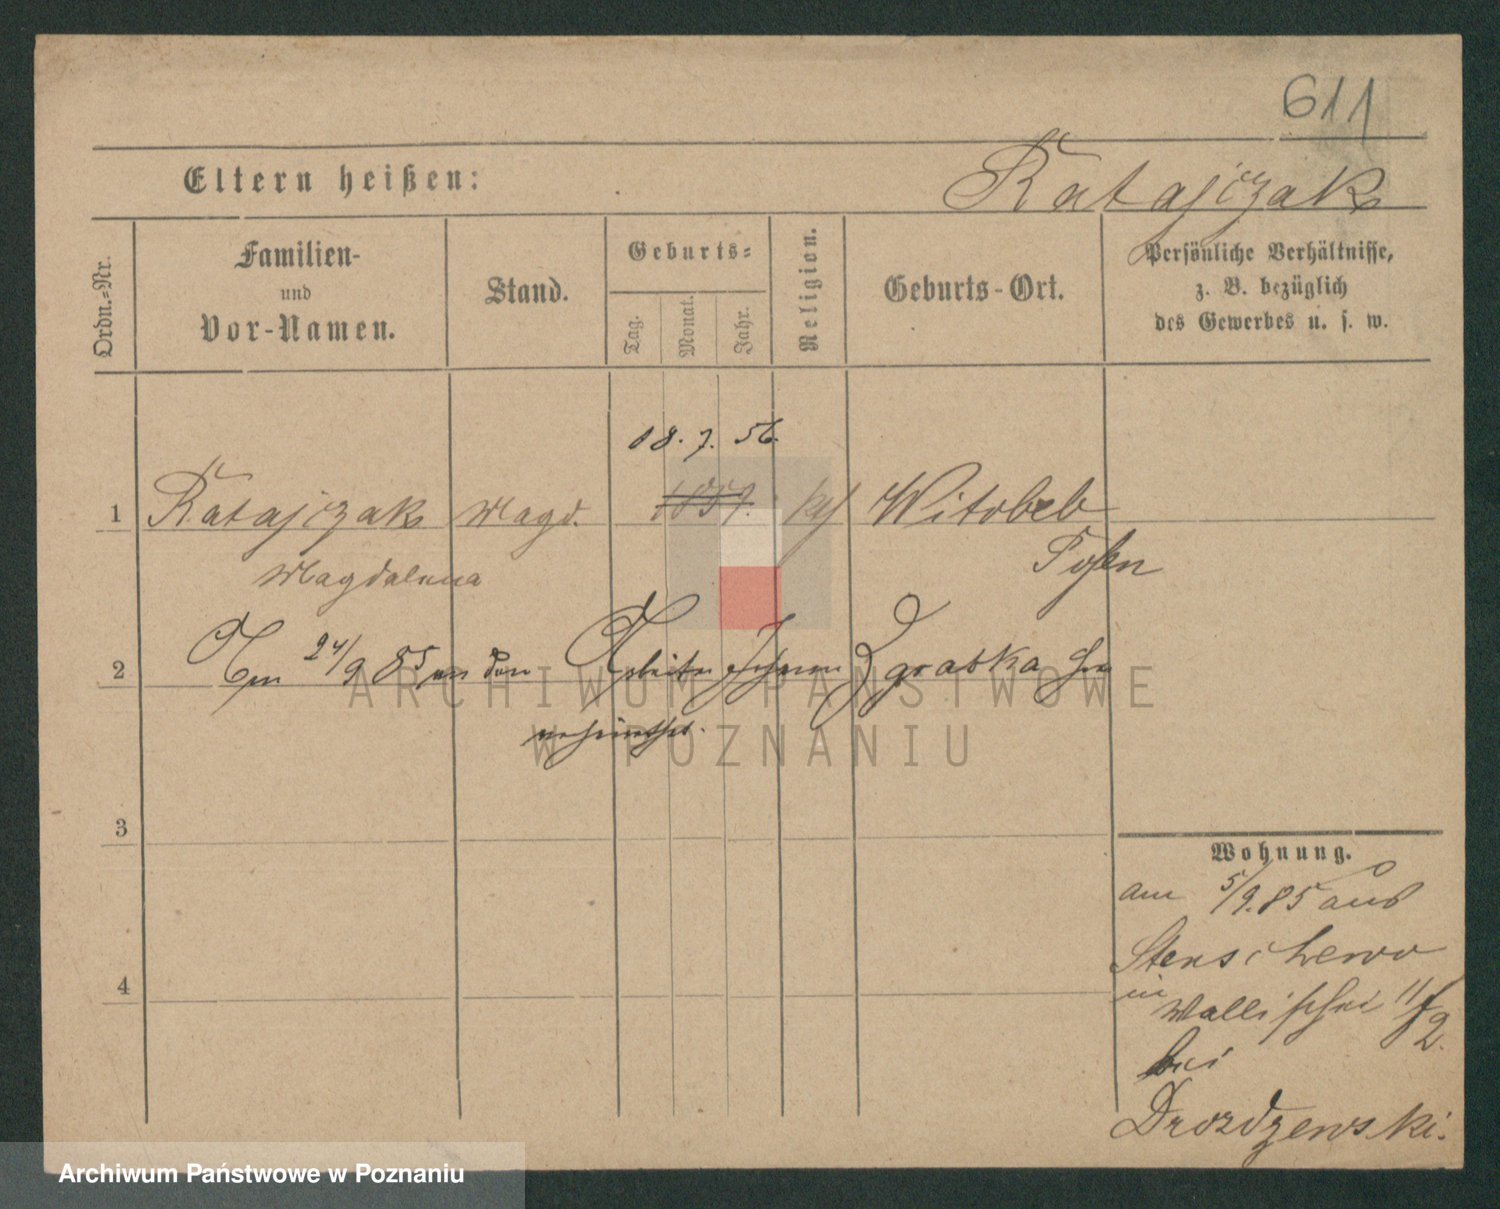 611
Eltern heißen:
Ratajczak
Ordn.-Nr.
Familien-
und
Vor-Namen.
Stand.
Geburts-
Tag.
Monat.
Jahr.
Religion.
Geburts-Ort.
Persönliche Verhältnisse,
z. B. bezüglich
des Gewerbes u. s. w.
18. 7. 56.
1 Ratajczak Magd. 1857. kath Witobel
Magdalena
Posen
2 Am 24/9 85 an den Arbeiter Johann Zgratka
verheirathet.
3
4
Wohnung.
am 5/9.85 aus
Stenschewo
in Wallischei 11/
2.
bei
Drozdzewski.
ARCHIWUM PAŃSTWOWE
W POZNANIU
Archiwum Państwowe w Poznaniu